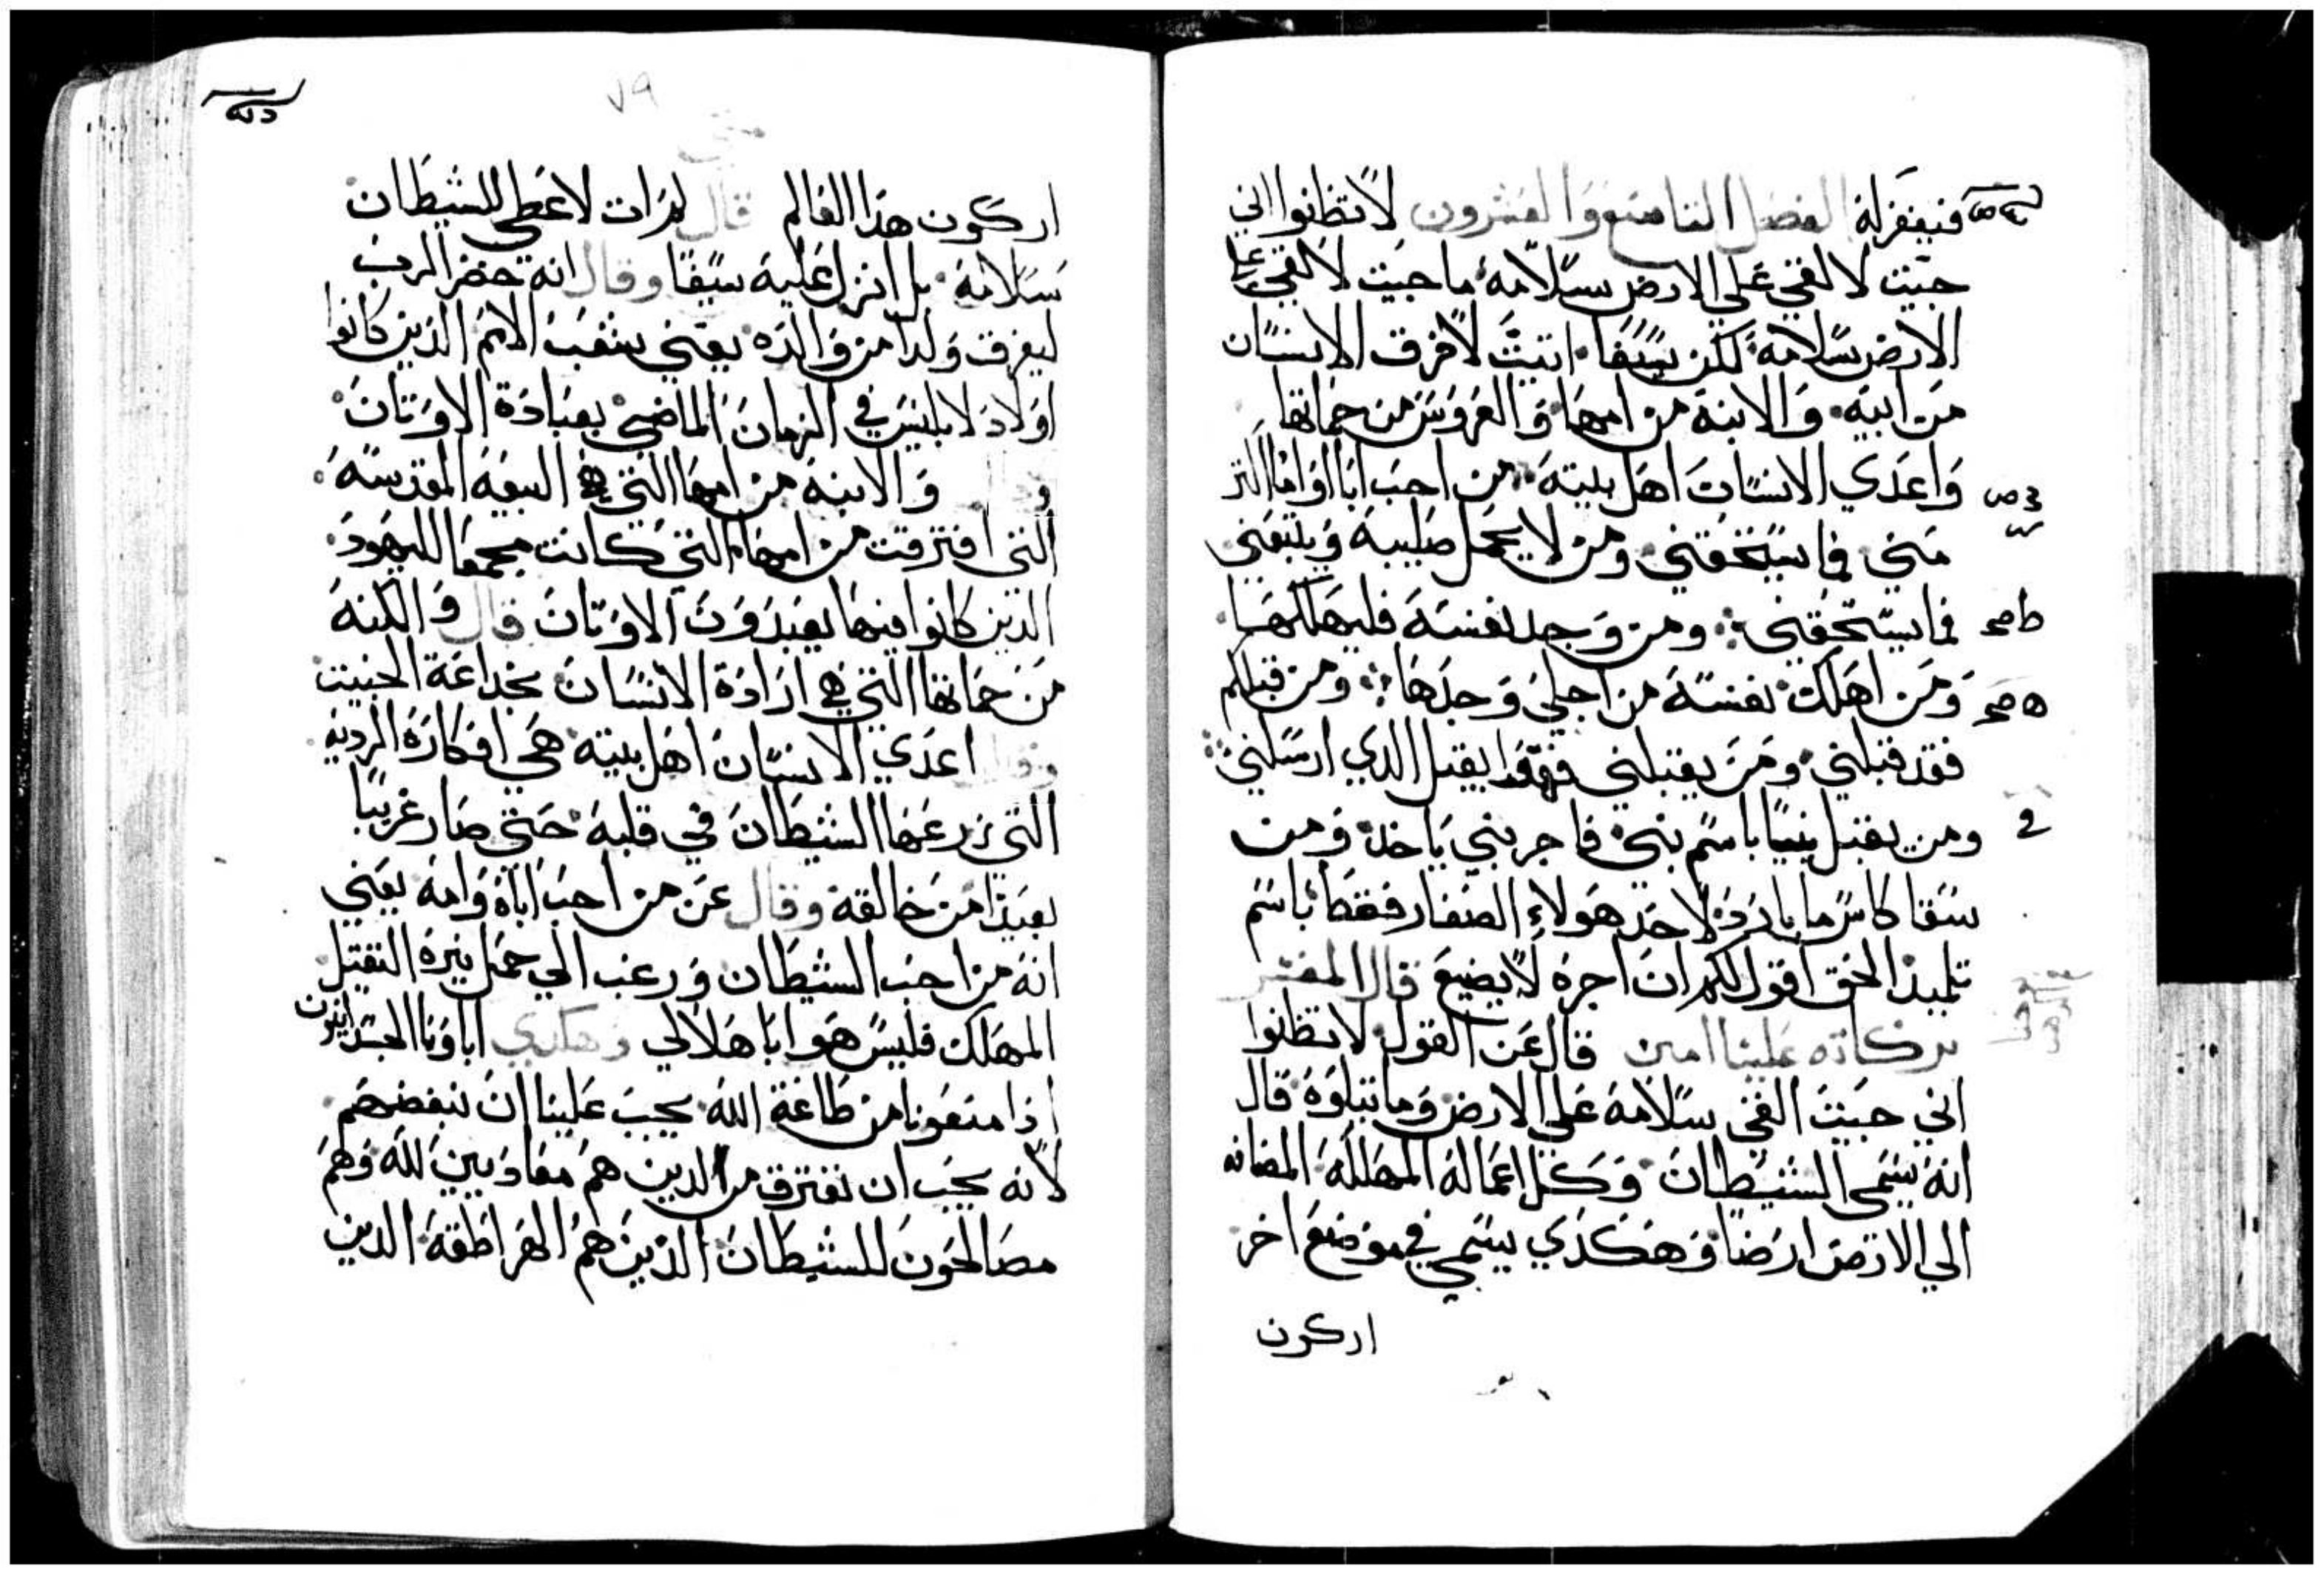 فيغفر له الفصل الثامن والعشرون لا تظنوا اني
جيت لالقي علي الارض سلامة ما جيت لالقي علي
الارض سلامه لكن سيفا اتيت لافرق الانسان
من ابيه والابنة من امها والعروس من حماتها
واعدي الانسان اهل بيته من احب ابا او اما اكثر
مني فما يستحقني ومن لا يحمل صليبه ويتبعني
فما يستحقني ومن وجد نفسه فليهلكها
ومن اهلك نفسه من اجلي وجدها ومن قبلكم
فقد قبلني ومن يقبلني فهو يقبل الدي ارسلني
ومن يقبل نبيا باسم نبي فاجر نبي ياخد ومن
سقا كاس ما بارد لاحد هولاء الصغار فقط باسم
تلميد الحق اقول لكم ان اجره لا يضيع قال المفسر
بركاته علينا امين قال عن القول لا تظنوا
اني جيت القي سلامة علي الارض وما يتلوه قال
انه يسمي الشيطان وكل اعماله المهلكه المضافه
الي الارض ارضا وهكدي يسمي في موضع اخر
اركون
٧٩
اركون هذا العالم قال لم ات لاعطي للشيطان
سلامة بل انزل عليه سيفا وقال انه حضر الرب
ليفرق ولدا من والده يعني شعب الامم الدين كانوا
اولاد لابليس في الزمان الماضي بعبادة الاوثان
والابنة من امها التي هي البيعة المقدسة
التي افترقت من امها التي كانت مجمعا لليهود
الدين كانوا فيها يعبدون الاوثان قال والكنه
من حماتها التي هي ارادة الانسان بخداعة الخبيث
وقال اعدي الانسان اهل بيته هي افكاره الرديه
التي زرعها الشيطان في قلبه حتي صار غريبا
بعيدا من خالقه وقال عن من احب اباه وامه يعني
انه من احب الشيطان ورغب الي حمل نيره الثقيل
المهلك فليس هو ابا هلا لي وهكدي اباونا الجسدانيون
ادا منعونا من طاعة الله يجب علينا ان نبغضهم
لانه يجب ان نفترق من الدين هم معاديين لله وهم
مصالحون للشيطان الدين هم الهراطقه الدين